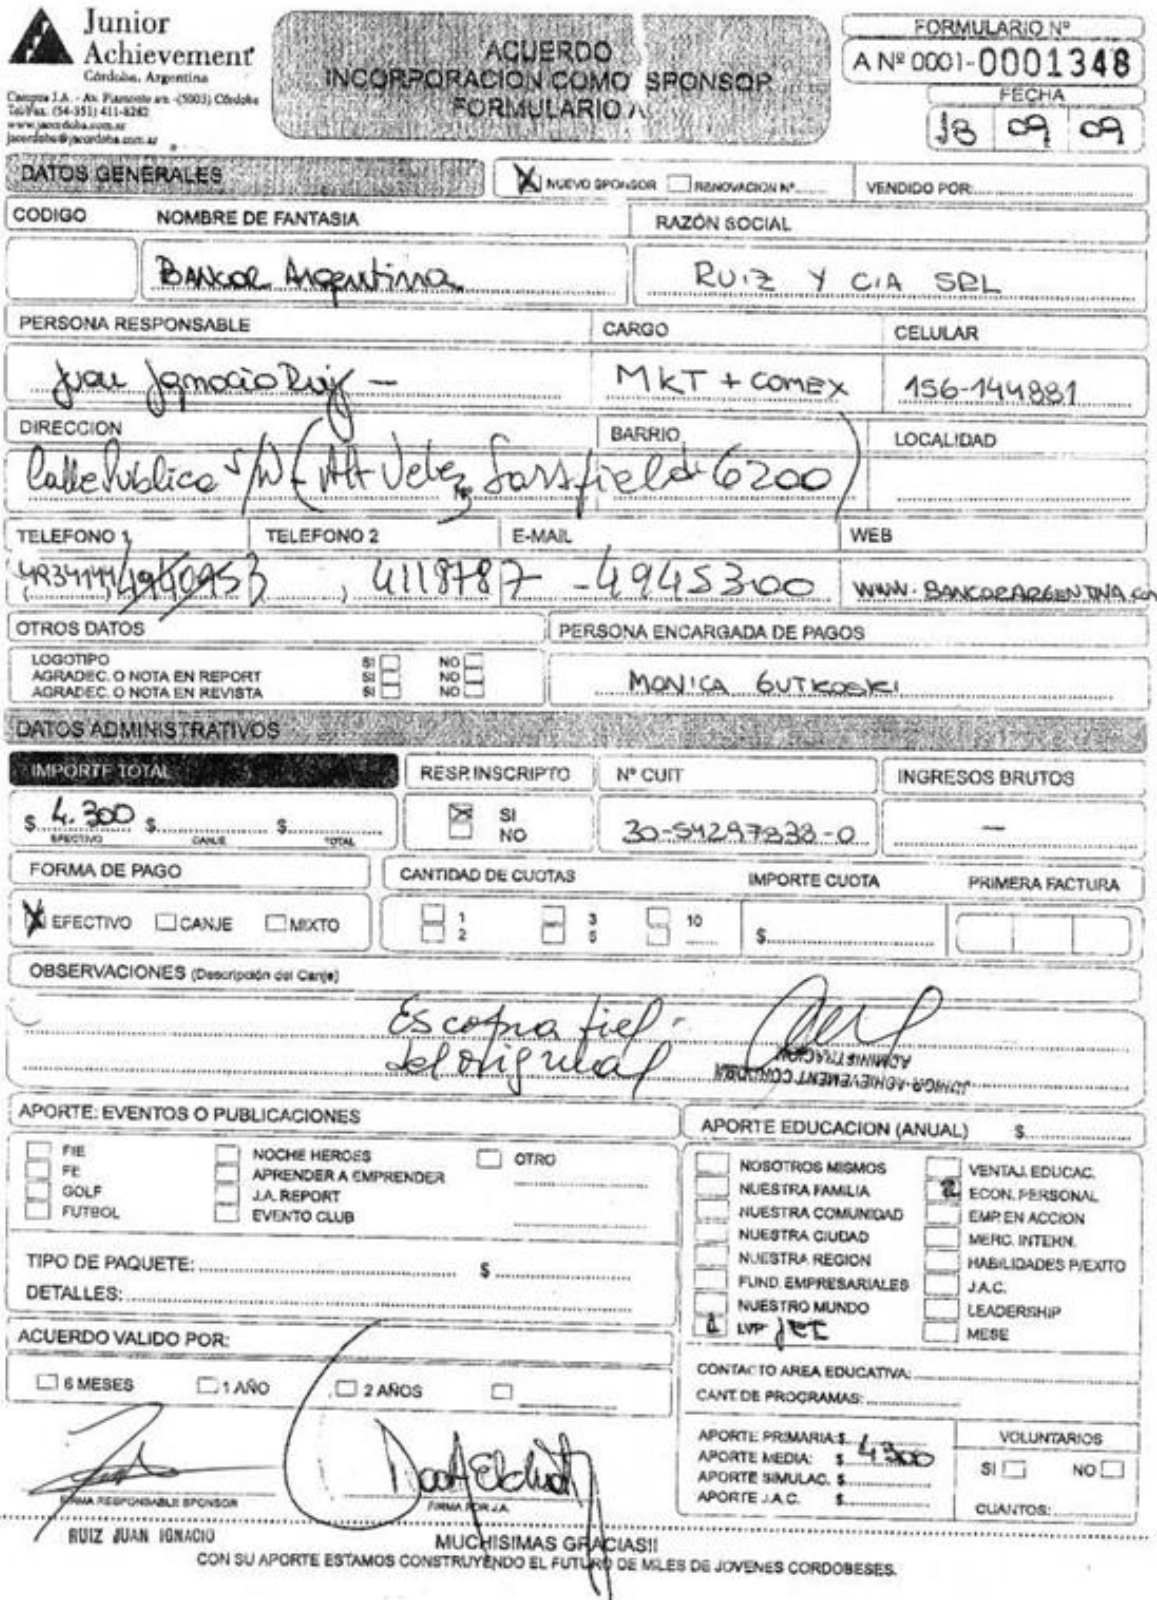 Junior
Achievement
Córdoba, Argentina
Campus J.A. - Av. Piamonte s/n - (5003) Córdoba
Tel/Fax: (54-351) 411-8282
www.jacordoba.com.ar
jacordoba@jacordoba.com.ar
ACUERDO
INCORPORACION COMO SPONSOR
FORMULARIO A
FORMULARIO Nº
A Nº 0001-0001348
FECHA
18 09 09
DATOS GENERALES
X NUEVO SPONSOR RENOVACION Nº
VENDIDO POR:
CODIGO NOMBRE DE FANTASIA RAZÓN SOCIAL
Bancor Argentina RUIZ Y CIA SRL
PERSONA RESPONSABLE CARGO CELULAR
Juan Ignacio Ruiz - MKT + COMEX 156-144881
DIRECCION BARRIO LOCALIDAD
Calle Publica S/N (Alt Velez Sarsfield 6200)
TELEFONO 1 TELEFONO 2 E-MAIL WEB
4940953 4118787 - 4945300 WWW.BANCORARGENTINA.COM
OTROS DATOS PERSONA ENCARGADA DE PAGOS
LOGOTIPO SI NO
AGRADEC. O NOTA EN REPORT SI NO
AGRADEC. O NOTA EN REVISTA SI NO
MONICA GUTKOSKI
DATOS ADMINISTRATIVOS
IMPORTE TOTAL RESP. INSCRIPTO Nº CUIT INGRESOS BRUTOS
$ 4.300 $ $ X SI 30-54297838-0 -
EFECTIVO CANJE TOTAL NO
FORMA DE PAGO CANTIDAD DE CUOTAS IMPORTE CUOTA PRIMERA FACTURA
X EFECTIVO CANJE MIXTO 1 3 10
2 5 $
OBSERVACIONES (Descripción del Canje)
Es copia fiel
del original
JUNIOR ACHIEVEMENT CORDOBA
ADMINISTRACION
APORTE: EVENTOS O PUBLICACIONES
FIE NOCHE HEROES OTRO
FE APRENDER A EMPRENDER
GOLF J.A. REPORT
FUTBOL EVENTO CLUB
TIPO DE PAQUETE: $
DETALLES:
ACUERDO VALIDO POR:
6 MESES 1 AÑO 2 AÑOS
APORTE EDUCACION (ANUAL) $
NOSOTROS MISMOS VENTAJ. EDUCAC.
NUESTRA FAMILIA 2 ECON. PERSONAL
NUESTRA COMUNIDAD EMP. EN ACCION
NUESTRA CIUDAD MERC. INTERN.
NUESTRA REGION HABILIDADES P/EXITO
FUND. EMPRESARIALES J.A.C.
NUESTRO MUNDO LEADERSHIP
1 LVP MESE
CONTACTO AREA EDUCATIVA:
CANT. DE PROGRAMAS:
APORTE PRIMARIA: $ VOLUNTARIOS
APORTE MEDIA: $ 4300 SI NO
APORTE SIMULAC. $
APORTE J.A.C. $ CUANTOS:
FIRMA RESPONSABLE SPONSOR FIRMA POR J.A.
RUIZ JUAN IGNACIO
MUCHISIMAS GRACIAS!!
CON SU APORTE ESTAMOS CONSTRUYENDO EL FUTURO DE MILES DE JOVENES CORDOBESES.